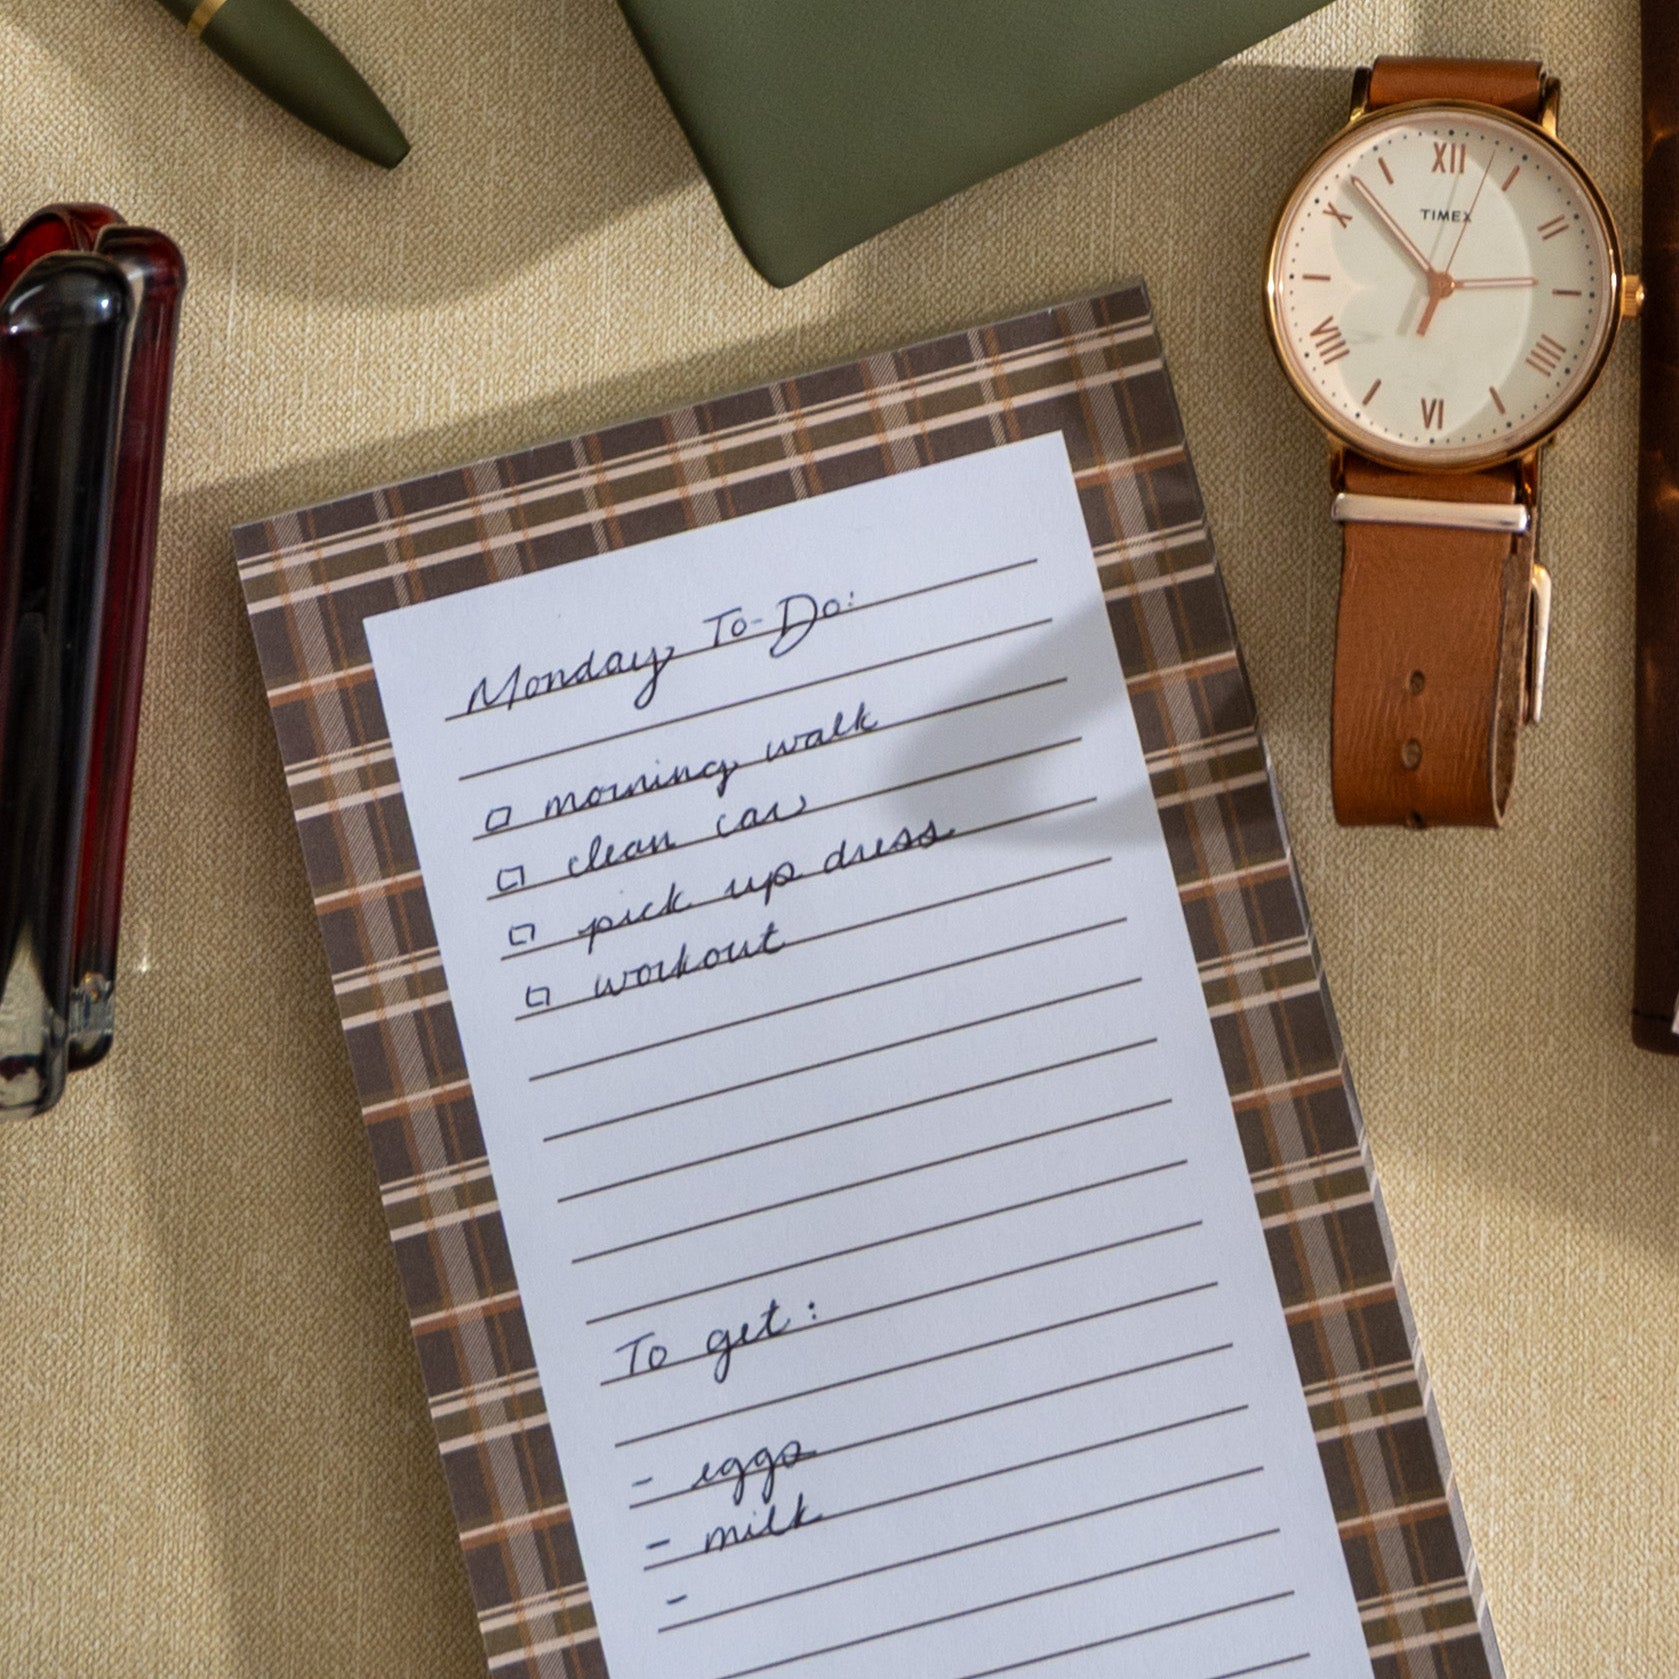 XII
TIMEX
X
VIII
IIII
VI
Monday To-Do:
□ morning walk
□ clean car
□ pick up dress
□ workout
To get:
- eggs
- milk
-